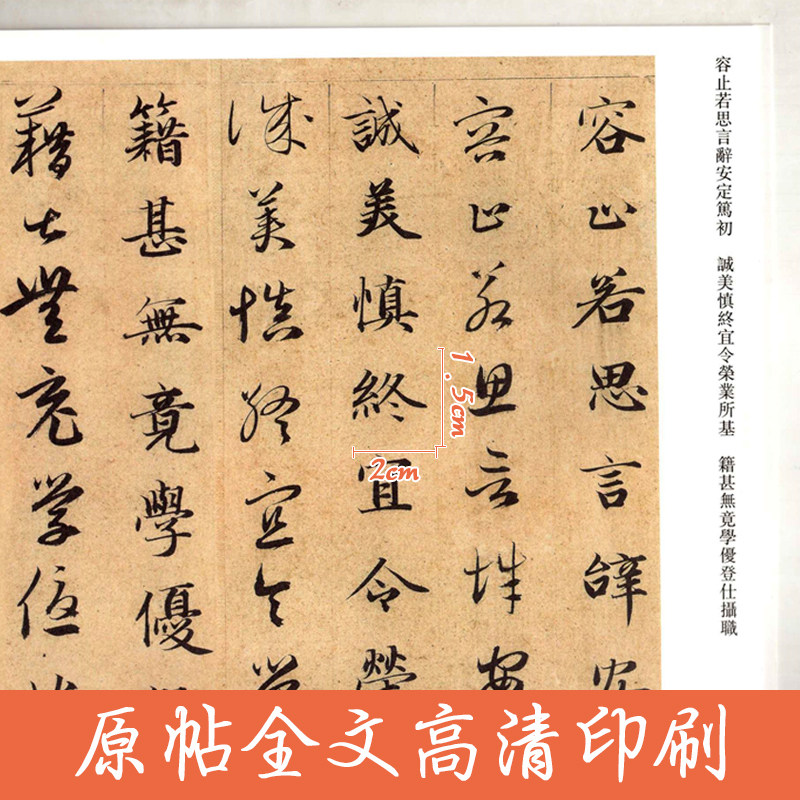 容止若思言辭安定篤初　誠美慎終宜令榮業所基　籍甚無竟學優登仕攝職
容止若思言辭安
容止若思言辭安
誠美慎終宜令榮
誠美慎終宜令榮
籍甚無竟學優
籍甚無竟學優
1.5cm
2cm
原帖全文高清印刷